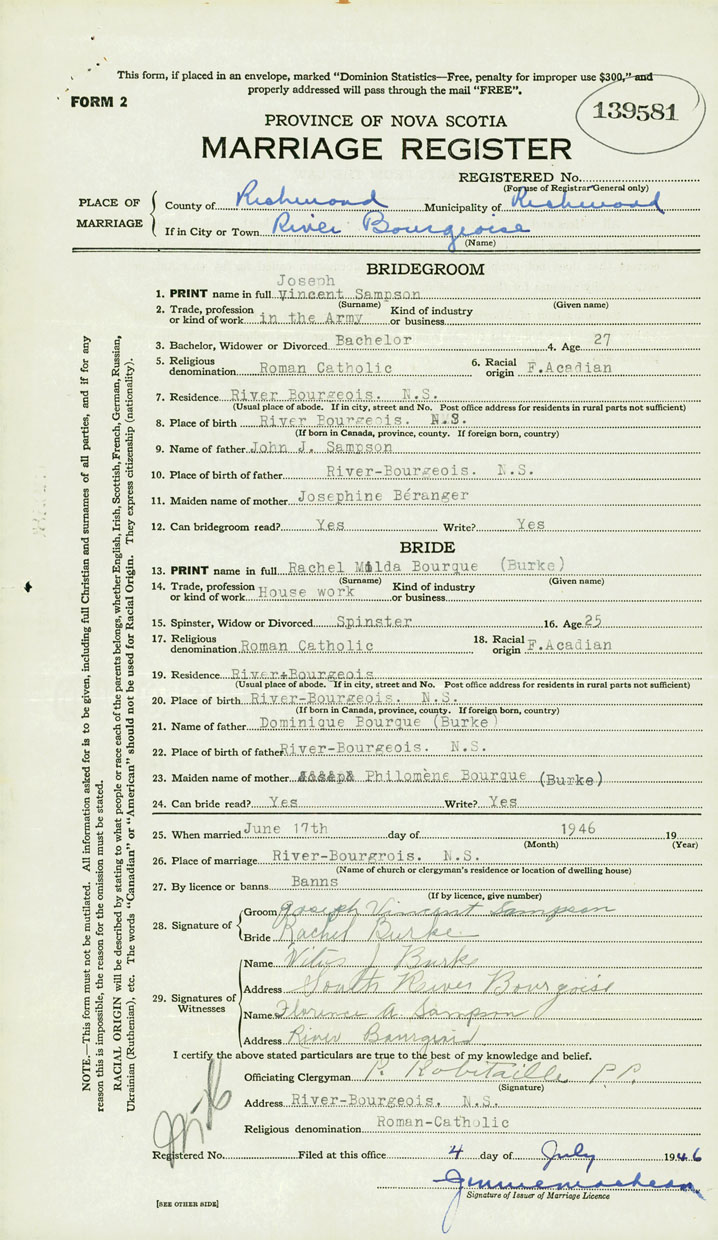 This form, if placed in an envelope, marked "Dominion Statistics—Free, penalty for improper use $300," and
properly addressed will pass through the mail "FREE".
FORM 2
139581
PROVINCE OF NOVA SCOTIA
MARRIAGE REGISTER
REGISTERED No.
(For use of Registrar General only)
PLACE OF MARRIAGE
County of Richmond Municipality of Richmond
If in City or Town River Bourgeoise
(Name)
BRIDEGROOM
Joseph
1. PRINT name in full Vincent Sampson
(Surname) (Given name)
2. Trade, profession or kind of work in the Army Kind of industry or business
3. Bachelor, Widower or Divorced Bachelor 4. Age 27
5. Religious denomination Roman Catholic 6. Racial origin F.Acadian
7. Residence River Bourgeois. N.S.
(Usual place of abode. If in city, street and No. Post office address for residents in rural parts not sufficient)
8. Place of birth River Bourgeois. N.S.
(If born in Canada, province, county. If foreign born, country)
9. Name of father John J. Sampson
10. Place of birth of father River-Bourgeois. N.S.
11. Maiden name of mother Josephine Béranger
12. Can bridegroom read? Yes Write? Yes
BRIDE
13. PRINT name in full Rachel Milda Bourque (Burke)
(Surname) (Given name)
14. Trade, profession or kind of work House work Kind of industry or business
15. Spinster, Widow or Divorced Spinster 16. Age 25
17. Religious denomination Roman Catholic 18. Racial origin F.Acadian
19. Residence River-Bourgeois
(Usual place of abode. If in city, street and No. Post office address for residents in rural parts not sufficient)
20. Place of birth River-Bourgeois. N.S.
(If born in Canada, province, county. If foreign born, country)
21. Name of father Dominique Bourque (Burke)
22. Place of birth of father River-Bourgeois. N.S.
23. Maiden name of mother Philomène Bourque (Burke)
24. Can bride read? Yes Write? Yes
25. When married June 17th day of 1946 19
(Month) (Year)
26. Place of marriage River-Bourgrois. N.S.
(Name of church or clergyman's residence or location of dwelling house)
27. By licence or banns Banns
(If by licence, give number)
28. Signature of
Groom Joseph Vincent Sampson
Bride Rachel Burke
29. Signatures of Witnesses
Name Vitus J Burke
Address South River Bourgoise
Name Florence A. Sampson
Address River Bourgeois
I certify the above stated particulars are true to the best of my knowledge and belief.
Officiating Clergyman P. Robitaille P.P.
(Signature)
Address River-Bourgeois. N.S.
Religious denomination Roman-Catholic
Registered No. Filed at this office 4 day of July 1946
Signature of Issuer of Marriage Licence
[SEE OTHER SIDE]
NOTE.—This form must not be mutilated. All information asked for is to be given, including full Christian and surnames of all parties, and if for any
reason this is impossible, the reason for the omission must be stated.
RACIAL ORIGIN will be described by stating to what people or race each of the parents belongs, whether English, Irish, Scottish, French, German, Russian,
Ukrainian (Ruthenian), etc. The words "Canadian" or "American" should not be used for Racial Origin. They express citizenship (nationality).